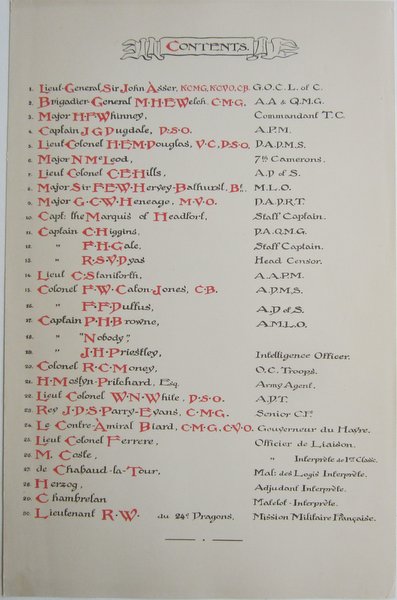 CONTENTS.
1. Lieut-General Sir John Asser, KCMG, KCVO, CB. G.O.C. L. of C.
2. Brigadier-General M.H.E. Welch, C.M.G. A.A & Q.M.G.
3. Major H.F. Whinney, Commandant T.C.
4. Captain J G Dugdale, D.S.O. A.P.M.
5. Lieut-Colonel H.E.M. Douglas, V.C, D.S.O. D.A.D.M.S.
6. Major N McLeod, 7th Camerons.
7. Lieut Colonel C.E. Hills, A.D of S.
8. Major Sir F.E.W. Hervey-Bathurst, Bt. M.L.O.
9. Major G.C.W. Heneage, M.V.O. D.A.P.R.T.
10. Capt: the Marquis of Headfort, Staff Captain.
11. Captain C. Higgins, D.A.Q.M.G.
12. " F.H. Gale, Staff Captain.
13. " R.S.V. Dyas Head Censor.
14. Lieut C. Staniforth, A.A.P.M.
15. Colonel F.W. Caton-Jones, C.B. A.D.M.S.
16. " F.F. Duffus, A.D of S.
17. Captain P.H. Browne, A.M.L.O.
18. " "Nobody",
19. " J.H. Priestley, Intelligence Officer.
20. Colonel R.C. Money, O.C. Troops.
21. H. Mostyn-Pritchard, Esq. Army Agent.
22. Lieut Colonel W.N. White, D.S.O. A.D.T.
23. Rev J.D.S. Parry-Evans, C.M.G. Senior
24. Le Contre-Amiral Biard, C.M.G, C.V.O. Gouverneur du Havre.
25. Lieut Colonel Ferrere, Officier de Liaison.
26. M. Coste, " Interprète de 1re Classe.
27. de Chabaud-la-Tour, Mal: des Logis Interprète.
28. Herzog, Adjudant Interprète.
29. Chambrelan Matelot-Interprète.
30. Lieutenant R.W. du 24e Dragons, Mission Militaire Française.